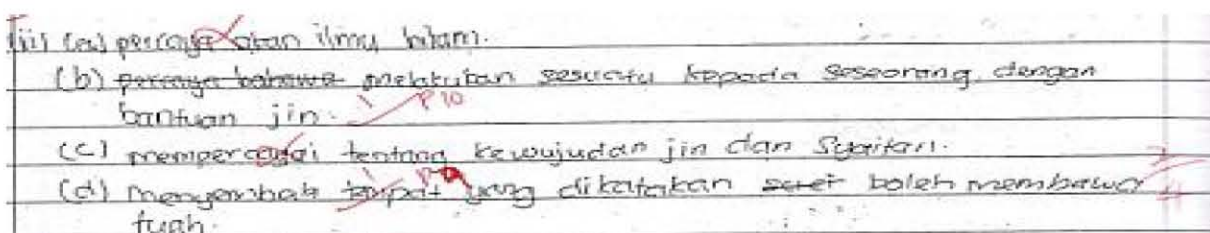 (iii) (a) percaya akan ilmu hitam.
(b) percaya bahawa melakukan sesuatu kepada seseorang dengan
bantuan jin. P10
(c) mempercayai tentang kewujudan jin dan Syaitan.
(d) menyembah tempat yang dikatakan boleh membawa
tuah.